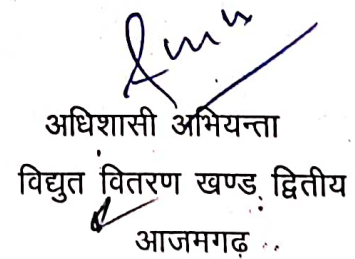 अधिशासी अभियन्ता
विद्युत वितरण खण्ड द्वितीय
आजमगढ़